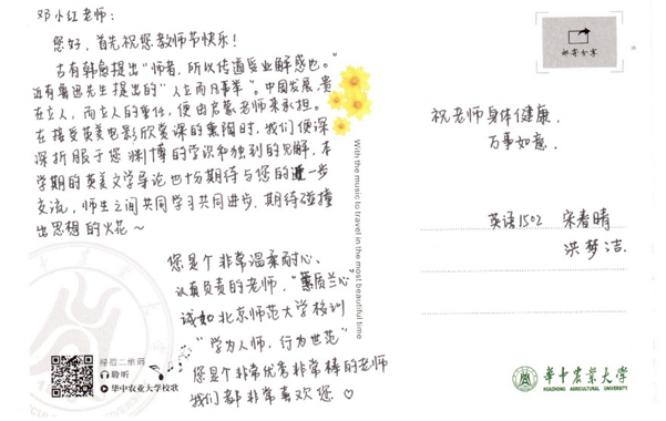 邓小红老师：
您好，首先祝您教师节快乐！
古有韩愈提出“师者，所以传道受业解惑也。”
近有鲁迅先生提出的“人立而凡事举”。中国发展，贵
在立人，而立人的责任，便由启蒙老师来承担。
在接受英美电影欣赏课的熏陶时，我们便深
深折服于您渊博的学识和独到的见解，本
学期的英美文学导论也十分期待与您的进一步
交流，师生之间共同学习共同进步，期待碰撞
出思想的火花～
您是个非常温柔耐心、
认真负责的老师，“蕙质兰心”
诚如北京师范大学校训
“学为人师，行为世范”
您是个非常优秀非常棒的老师
我们都非常喜欢您 ♡
With the music to travel in the most beautiful time
扫描二维码
聆听
华中农业大学校歌
邮寄分享
祝老师身体健康，
万事如意．
英语1502 宋春晴
洪梦洁．
华中农业大学
HUAZHONG AGRICULTURAL UNIVERSITY